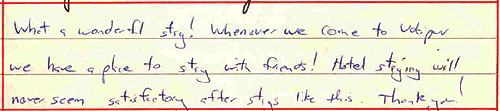 What a wonderful stay! Whenever we come to Udaipur
we have a place to stay with friends! Hotel staying will
never seem satisfactory after stays like this. Thank you!